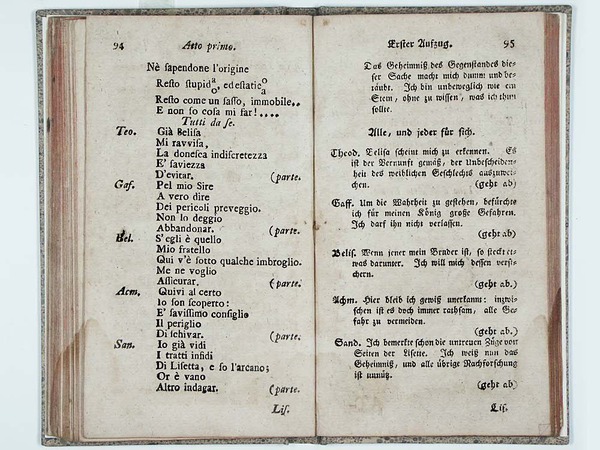 94 Atto primo.
Nè sapendone l'origine
Resto stupid a/o, ed estatic o/a
Resto come un sasso, immobile..
E non so cosa mi far!....
Tutti da se.
Teo. Già Belisa
Mi ravvisa,
La donesca indiscretezza
E' saviezza
D'evitar. (parte.
Gaf. Pel mio Sire
A vero dire
Dei pericoli preveggio.
Non lo deggio
Abbandonar. (parte.
Bel. S'egli è quello
Mio fratello
Qui v'è sotto qualche imbroglio.
Me ne voglio
Assicurar. (parte.
Acm. Quivi al certo
Io son scoperto:
E' savissimo consiglio
Il periglio
Di schivar. (parte.
San. Io già vidi
I tratti infidi
Di Lisetta, e so l'arcano;
Or è vano
Altro indagar. (parte.
Lis.
Erster Aufzug. 95
Das Geheimniß des Gegenstandes die-
ser Sache macht mich dumm und be-
täubt. Ich bin unbeweglich wie ein
Stein, ohne zu wissen, was ich thun
sollte.
Alle, und jeder für sich.
Theod. Belisa scheint mich zu erkennen. Es
ist der Vernunft gemäß, der Unbescheiden-
heit des weiblichen Geschlechts auszuwei-
chen. (geht ab)
Gaff. Um die Wahrheit zu gestehen, befürchte
ich für meinen König große Gefahren.
Ich darf ihn nicht verlassen.
(geht ab)
Belis. Wenn jener mein Bruder ist, so steckt et-
was darunter. Ich will mich dessen versi-
chern.
(geht ab.)
Achm. Hier bleib ich gewiß unerkannt: inzwi-
schen ist es doch immer rathsam, alle Ge-
fahr zu vermeiden.
(geht ab.)
Sand. Ich bemerkte schon die untreuen Züge von
Seiten der Lisette. Ich weiß nun das
Geheimniß, und alle übrige Nachforschung
ist unnütz.
(geht ab)
Lis.